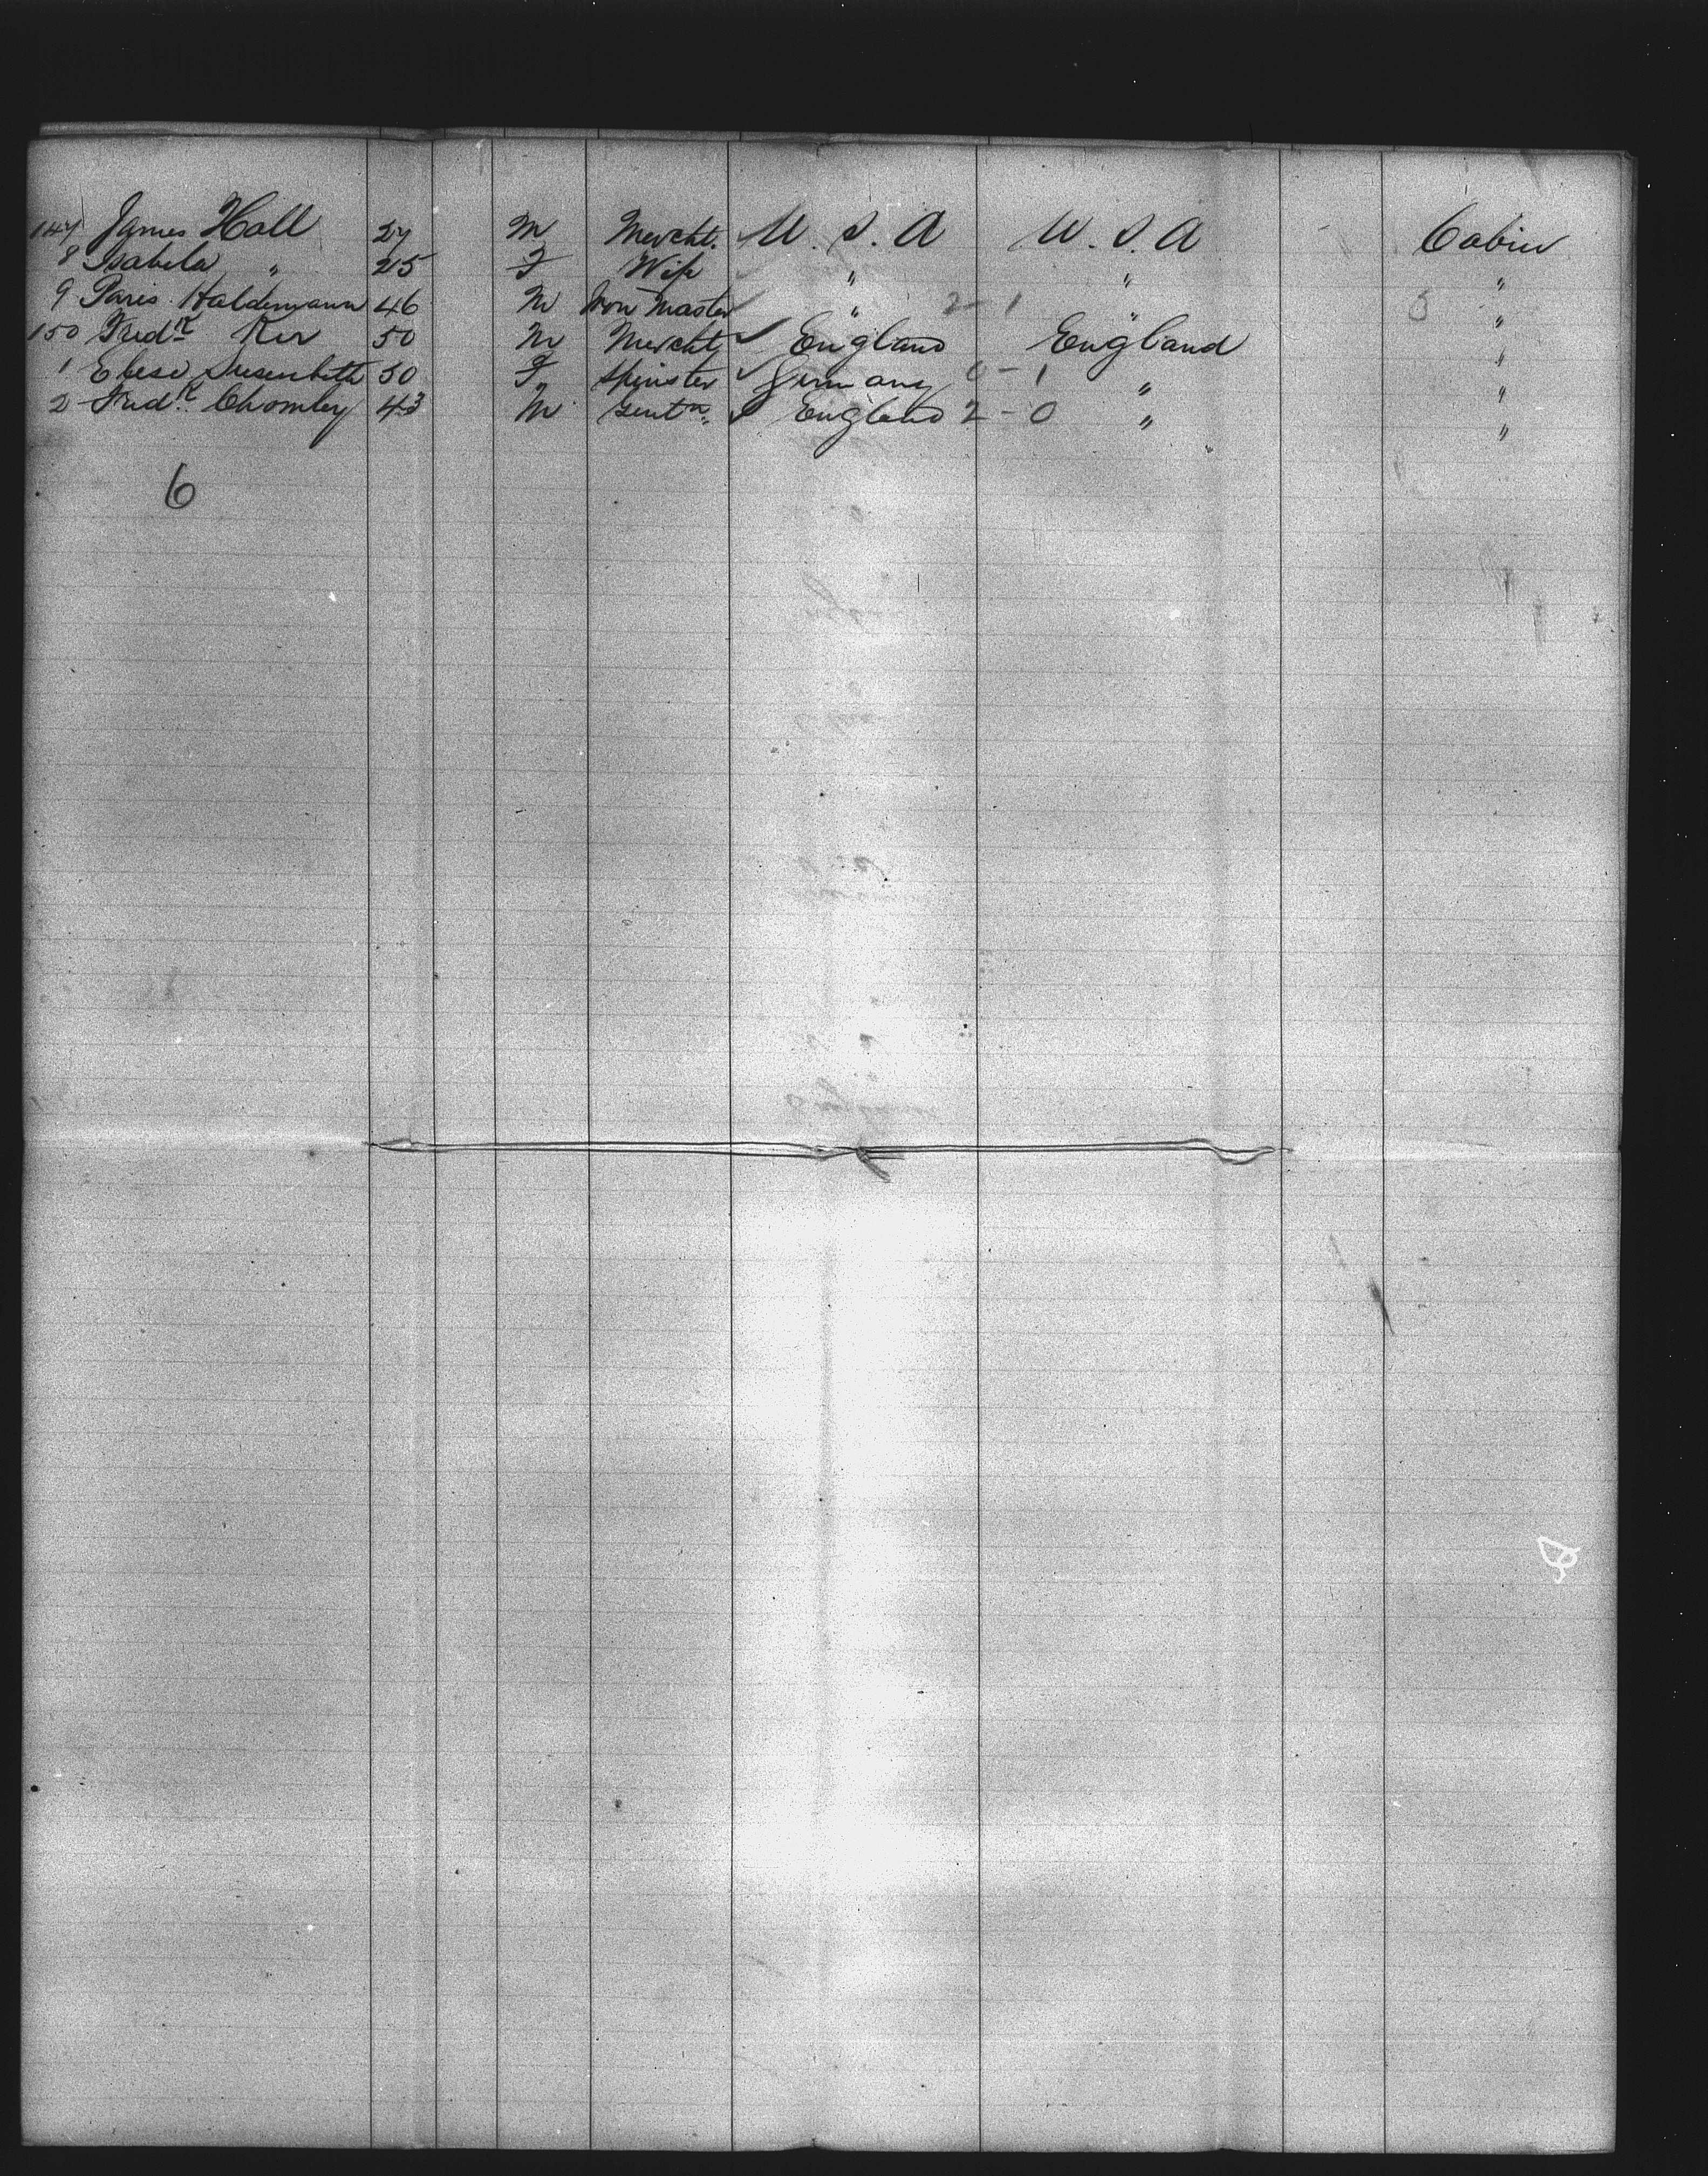 147 James Hall 27 M Mercht. U. S. A U. S. A Cabin
8 Isabela " 25 F Wife " " "
9 Paris Haldemann 46 M Iron Master " 2-1 " 3 "
150 Fredk Ker 50 M Mercht England England "
1 50 F Spinster Germany 0-1 " "
2 Fredk Chomley 43 M Gentn. England 2-0 " "
6